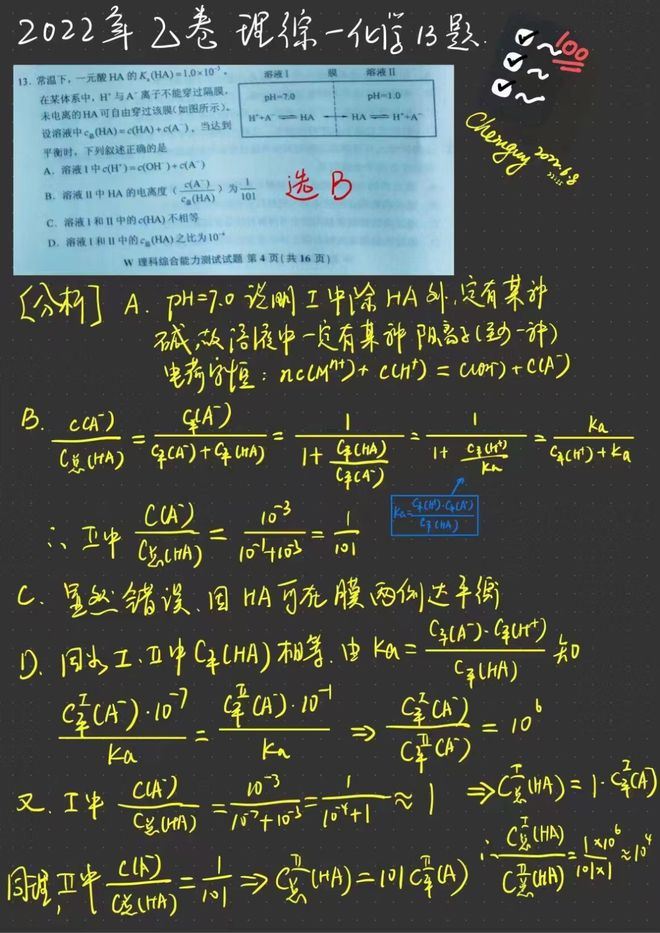 2022年 乙卷 理综—化学13题.
100
Chenguy 2022.6.8
13. 常温下，一元酸 HA 的 Kₐ(HA)=1.0×10⁻³。
在某体系中，H⁺与 A⁻离子不能穿过隔膜，
未电离的 HA 可自由穿过该膜(如图所示)。
设溶液中 c总(HA)=c(HA)+c(A⁻)，当达到
平衡时，下列叙述正确的是
溶液 I 膜 溶液 II
pH=7.0 pH=1.0
H⁺+A⁻ ⇌ HA ⟷ HA ⇌ H⁺+A⁻
A. 溶液 I 中 c(H⁺)=c(OH⁻)+c(A⁻)
B. 溶液 II 中 HA 的电离度 (c(A⁻)/c总(HA)) 为 1/101
选 B
C. 溶液 I 和 II 中的 c(HA) 不相等
D. 溶液 I 和 II 中的 c总(HA) 之比为 10⁻⁴
W 理科综合能力测试试题 第 4 页(共 16 页)
[分析] A. pH=7.0 说明 I 中除 HA 外，定有某种
碱，故溶液中一定有某种阳离子(至少一种)
电荷守恒: nc(Mⁿ⁺) + c(H⁺) = c(OH⁻) + c(A⁻)
B. c(A⁻)/c总(HA) = c平(A⁻)/(c平(A⁻)+c平(HA)) = 1/(1+c平(HA)/c平(A⁻)) = 1/(1+c平(H⁺)/Ka) = Ka/(c平(H⁺)+Ka)
Ka=c平(H⁺)·c平(A⁻)/c平(HA)
∴ II中 c(A⁻)/c总(HA) = 10⁻³/(10⁻¹+10⁻³) = 1/101
C. 显然错误、因 HA 可在膜两侧达平衡
D. 因为 I、II 中 C平(HA) 相等. 由 Ka = C平(A⁻)·C平(H⁺)/C平(HA) 知
C平ᴵ(A⁻)·10⁻⁷/Ka = C平ᴵᴵ(A⁻)·10⁻¹/Ka ⇒ C平ᴵ(A⁻)/C平ᴵᴵ(A⁻) = 10⁶
又. I中 c(A⁻)/C总(HA) = 10⁻³/(10⁻⁷+10⁻³) = 1/(10⁻⁴+1) ≈ 1 ⇒ C总ᴵ(HA) = 1·C平ᴵ(A)
同理, II中 c(A⁻)/C总(HA) = 1/101 ⇒ C总ᴵᴵ(HA) = 101 C平ᴵᴵ(A) ∴ C总ᴵ(HA)/C总ᴵᴵ(HA) = 1×10⁶/101×1 ≈ 10⁴